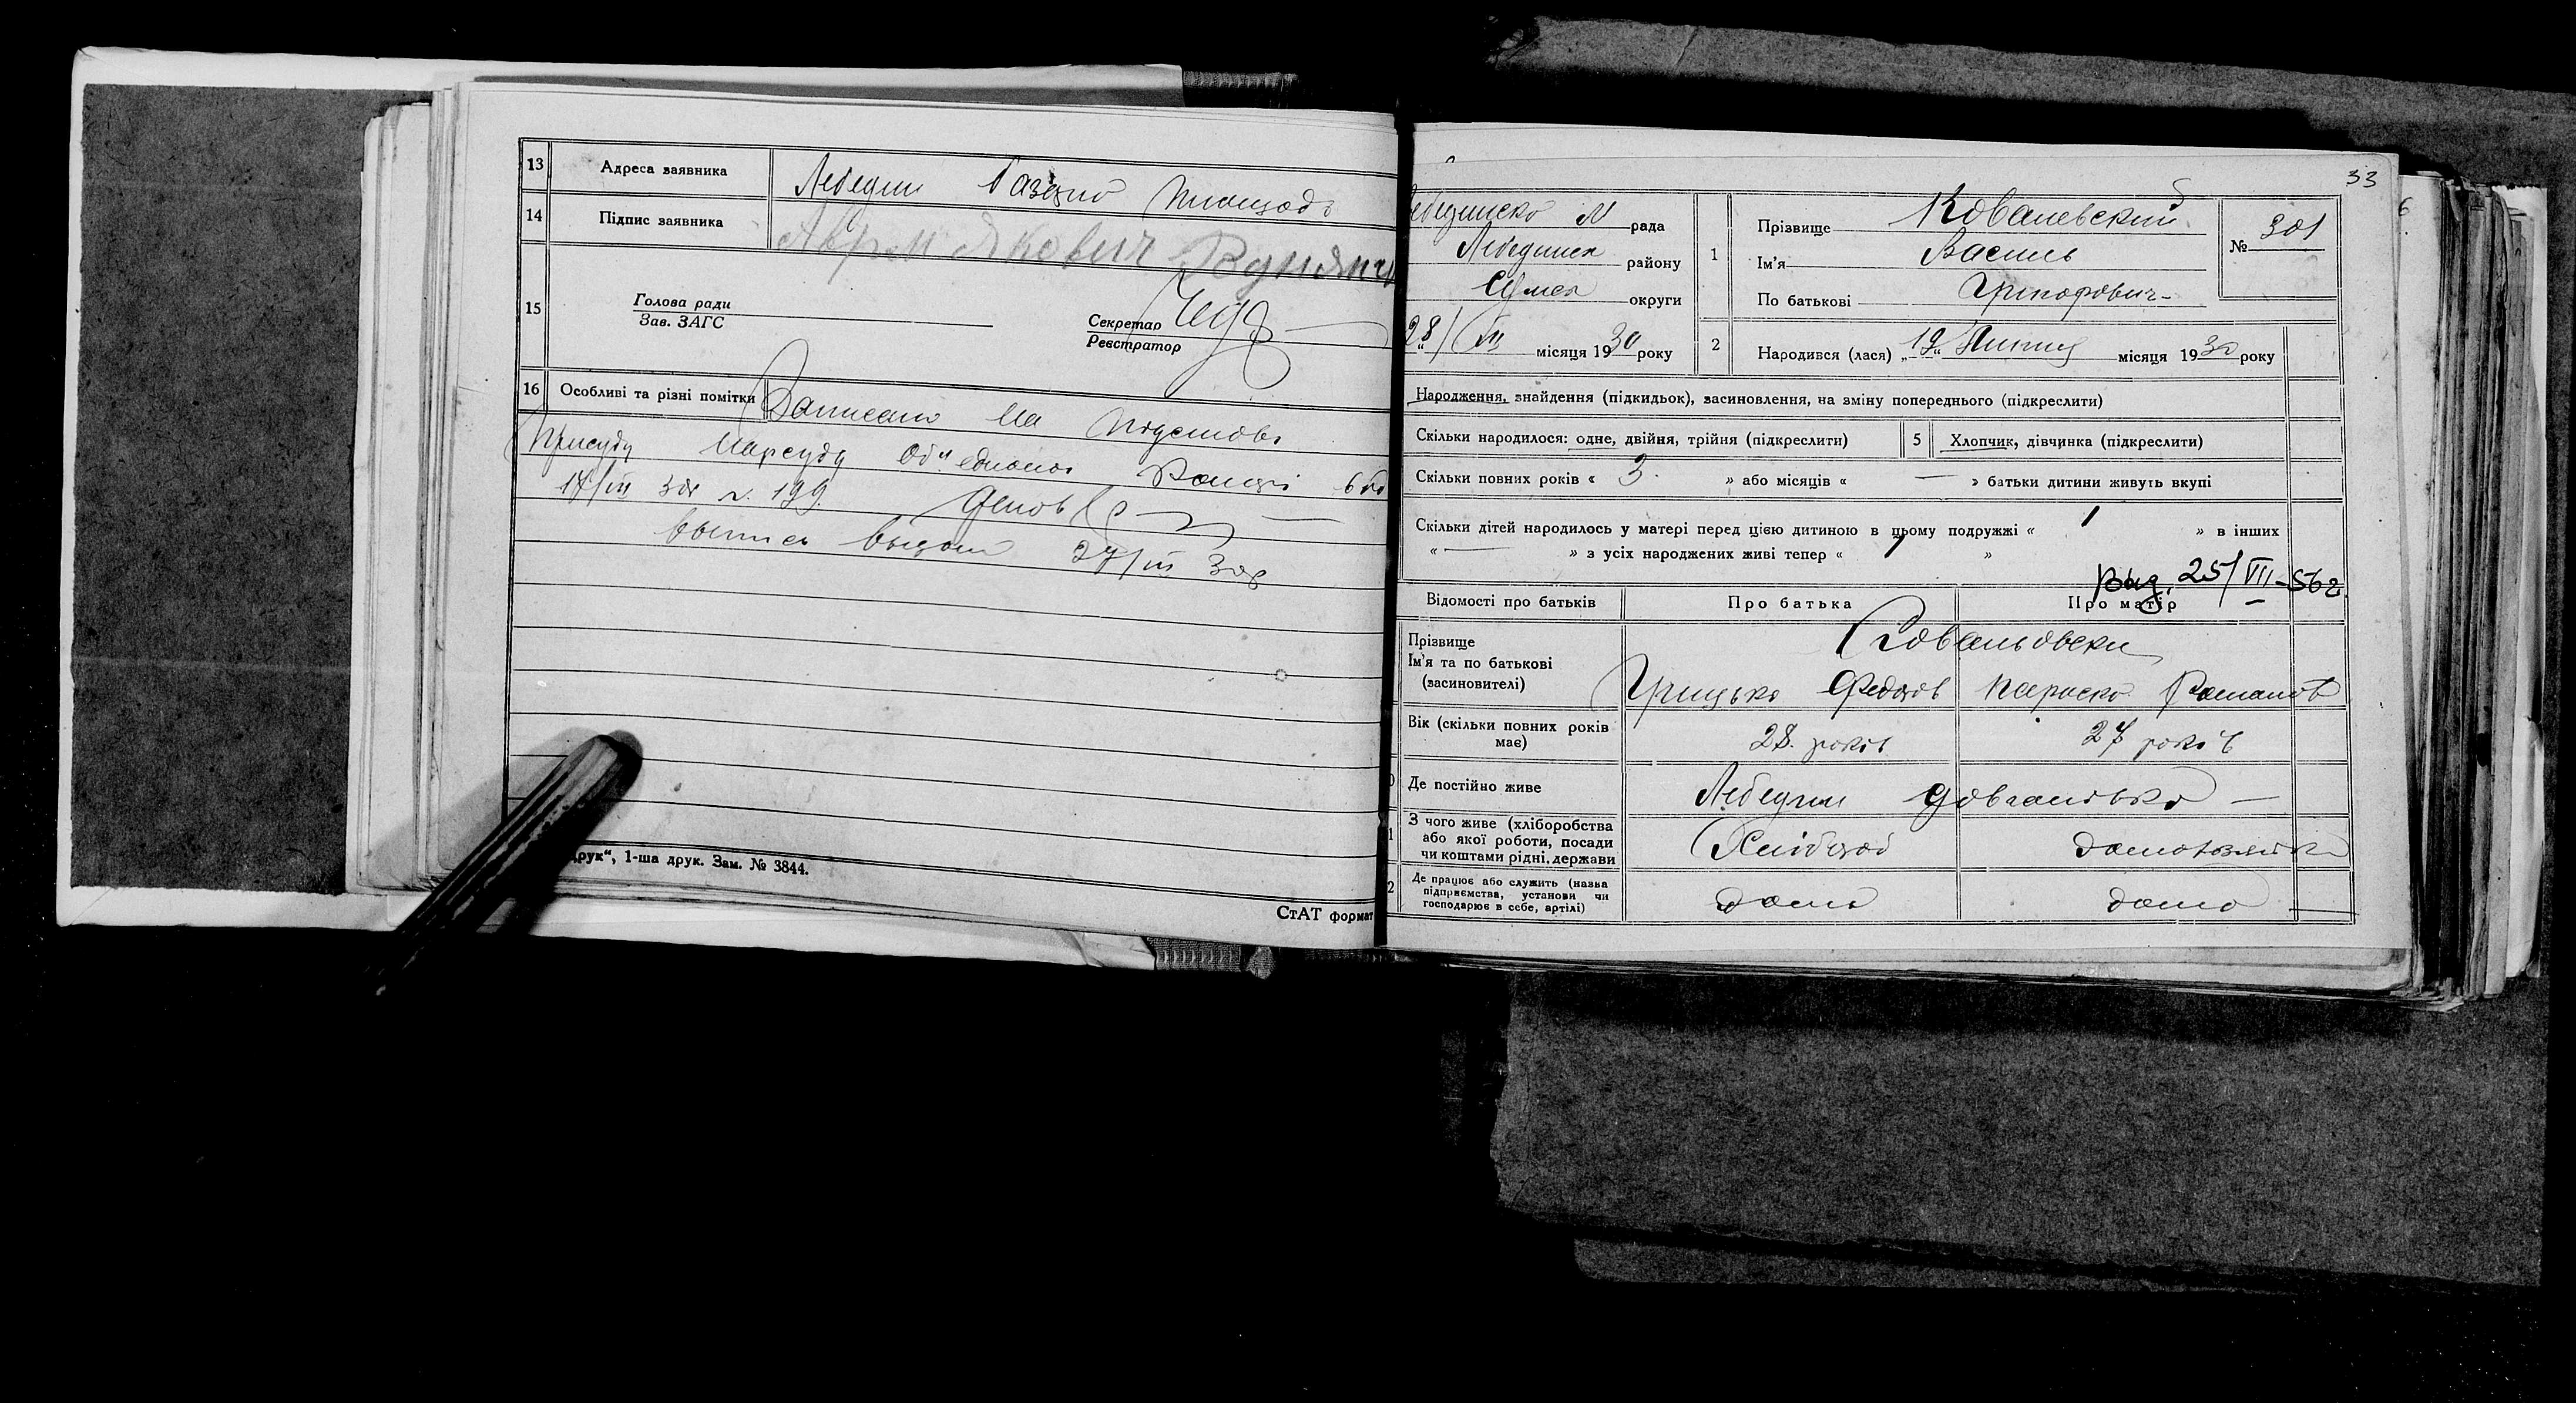 13 Адреса заявника Лебедин Базарно площадь
14 Підпис заявника Аврам Якович
15 Голова ради
Зав. ЗАГС
Секретар
Реєстратор
16 Особливі та різні помітки Записано на підставі
присуду Нарсуду
17/III 30р N. 199.
27/III 30р
друк“, 1-ша друк. Зам. № 3844.
СтАТ формат
33
М рада
Лебединск району
Сумск округи
28/VII місяця 1930 року
1 Прізвище Ковалевский
Ім'я Василь
По батькові Григорович
№ 301
2 Народився (лася) „19“ Липня місяця 1930 року
Народження, знайдення (підкидьок), засиновлення, на зміну попереднього (підкреслити)
Скільки народилося: одне, двійня, трійня (підкреслити) 5 Хлопчик, дівчинка (підкреслити)
Скільки повних років « 3 » або місяців « — » батьки дитини живуть вкупі
Скільки дітей народилось у матері перед цією дитиною в цьому подружжі « 1 » в інших
« — » з усіх народжених живі тепер « 1 »
Выд. 25/VII-56 г.
Відомості про батьків Про батька Про матір
Прізвище
Ім'я та по батькові
(засновителі)
Ковальовски
Грицько Федоров Параско Романов
Вік (скільки повних років
має) 28 років 27 років
Де постійно живе Лебедин
З чого живе (хліборобства
або якої роботи, посади
чи коштами рідні, держави Хлібороб домохазяйка
Де працює або служить (назва
підприємства, установи чи
господарює в себе, артілі) дома дома